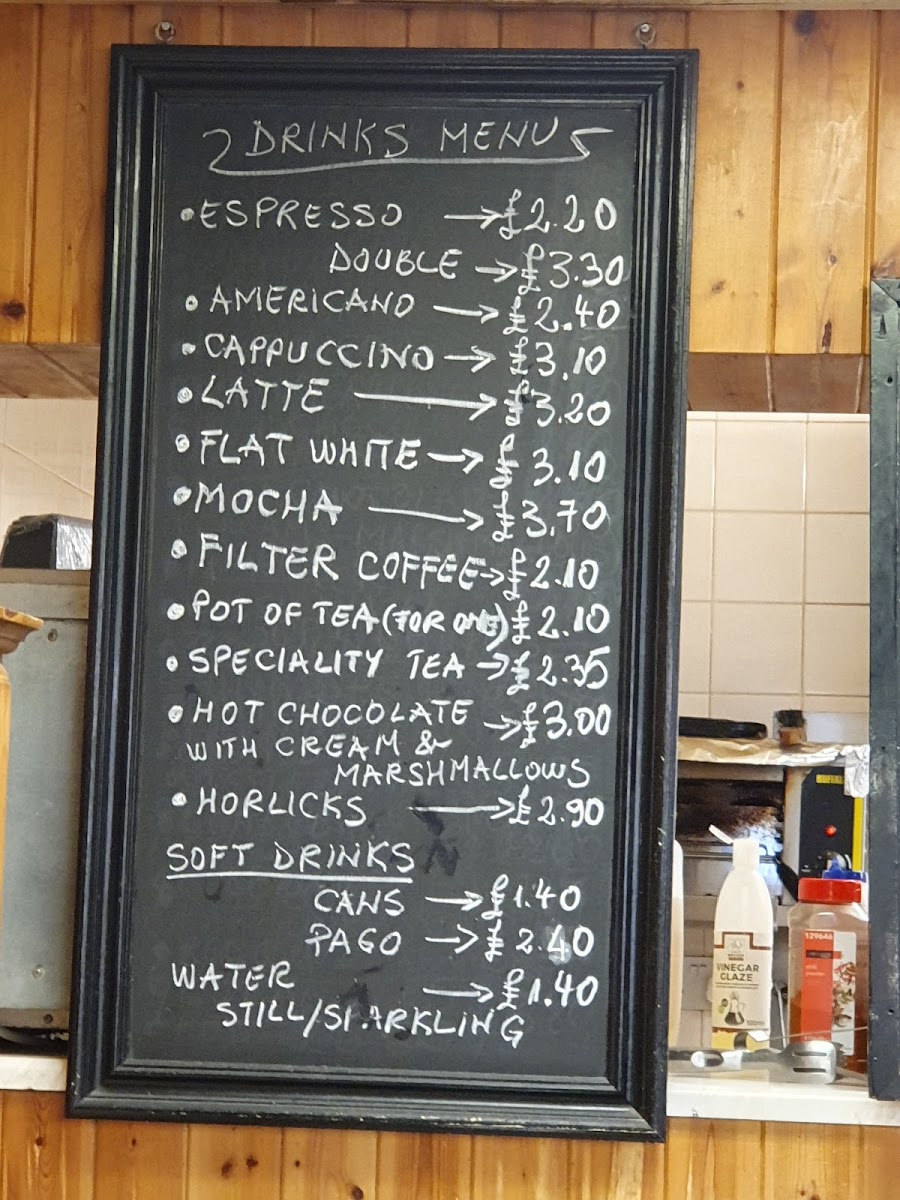 DRINKS MENU
• ESPRESSO → £2.20
DOUBLE → £3.30
• AMERICANO → £2.40
• CAPPUCCINO → £3.10
• LATTE → £3.20
• FLAT WHITE → £3.10
• MOCHA → £3.70
• FILTER COFFEE → £2.10
• POT OF TEA (FOR ONE) £2.10
• SPECIALITY TEA → £2.35
• HOT CHOCOLATE → £3.00
WITH CREAM &
MARSHMALLOWS
• HORLICKS → £2.90
SOFT DRINKS
CANS → £1.40
PAGO → £2.40
WATER → £1.40
STILL/SPARKLING
VINEGAR
GLAZE
129646